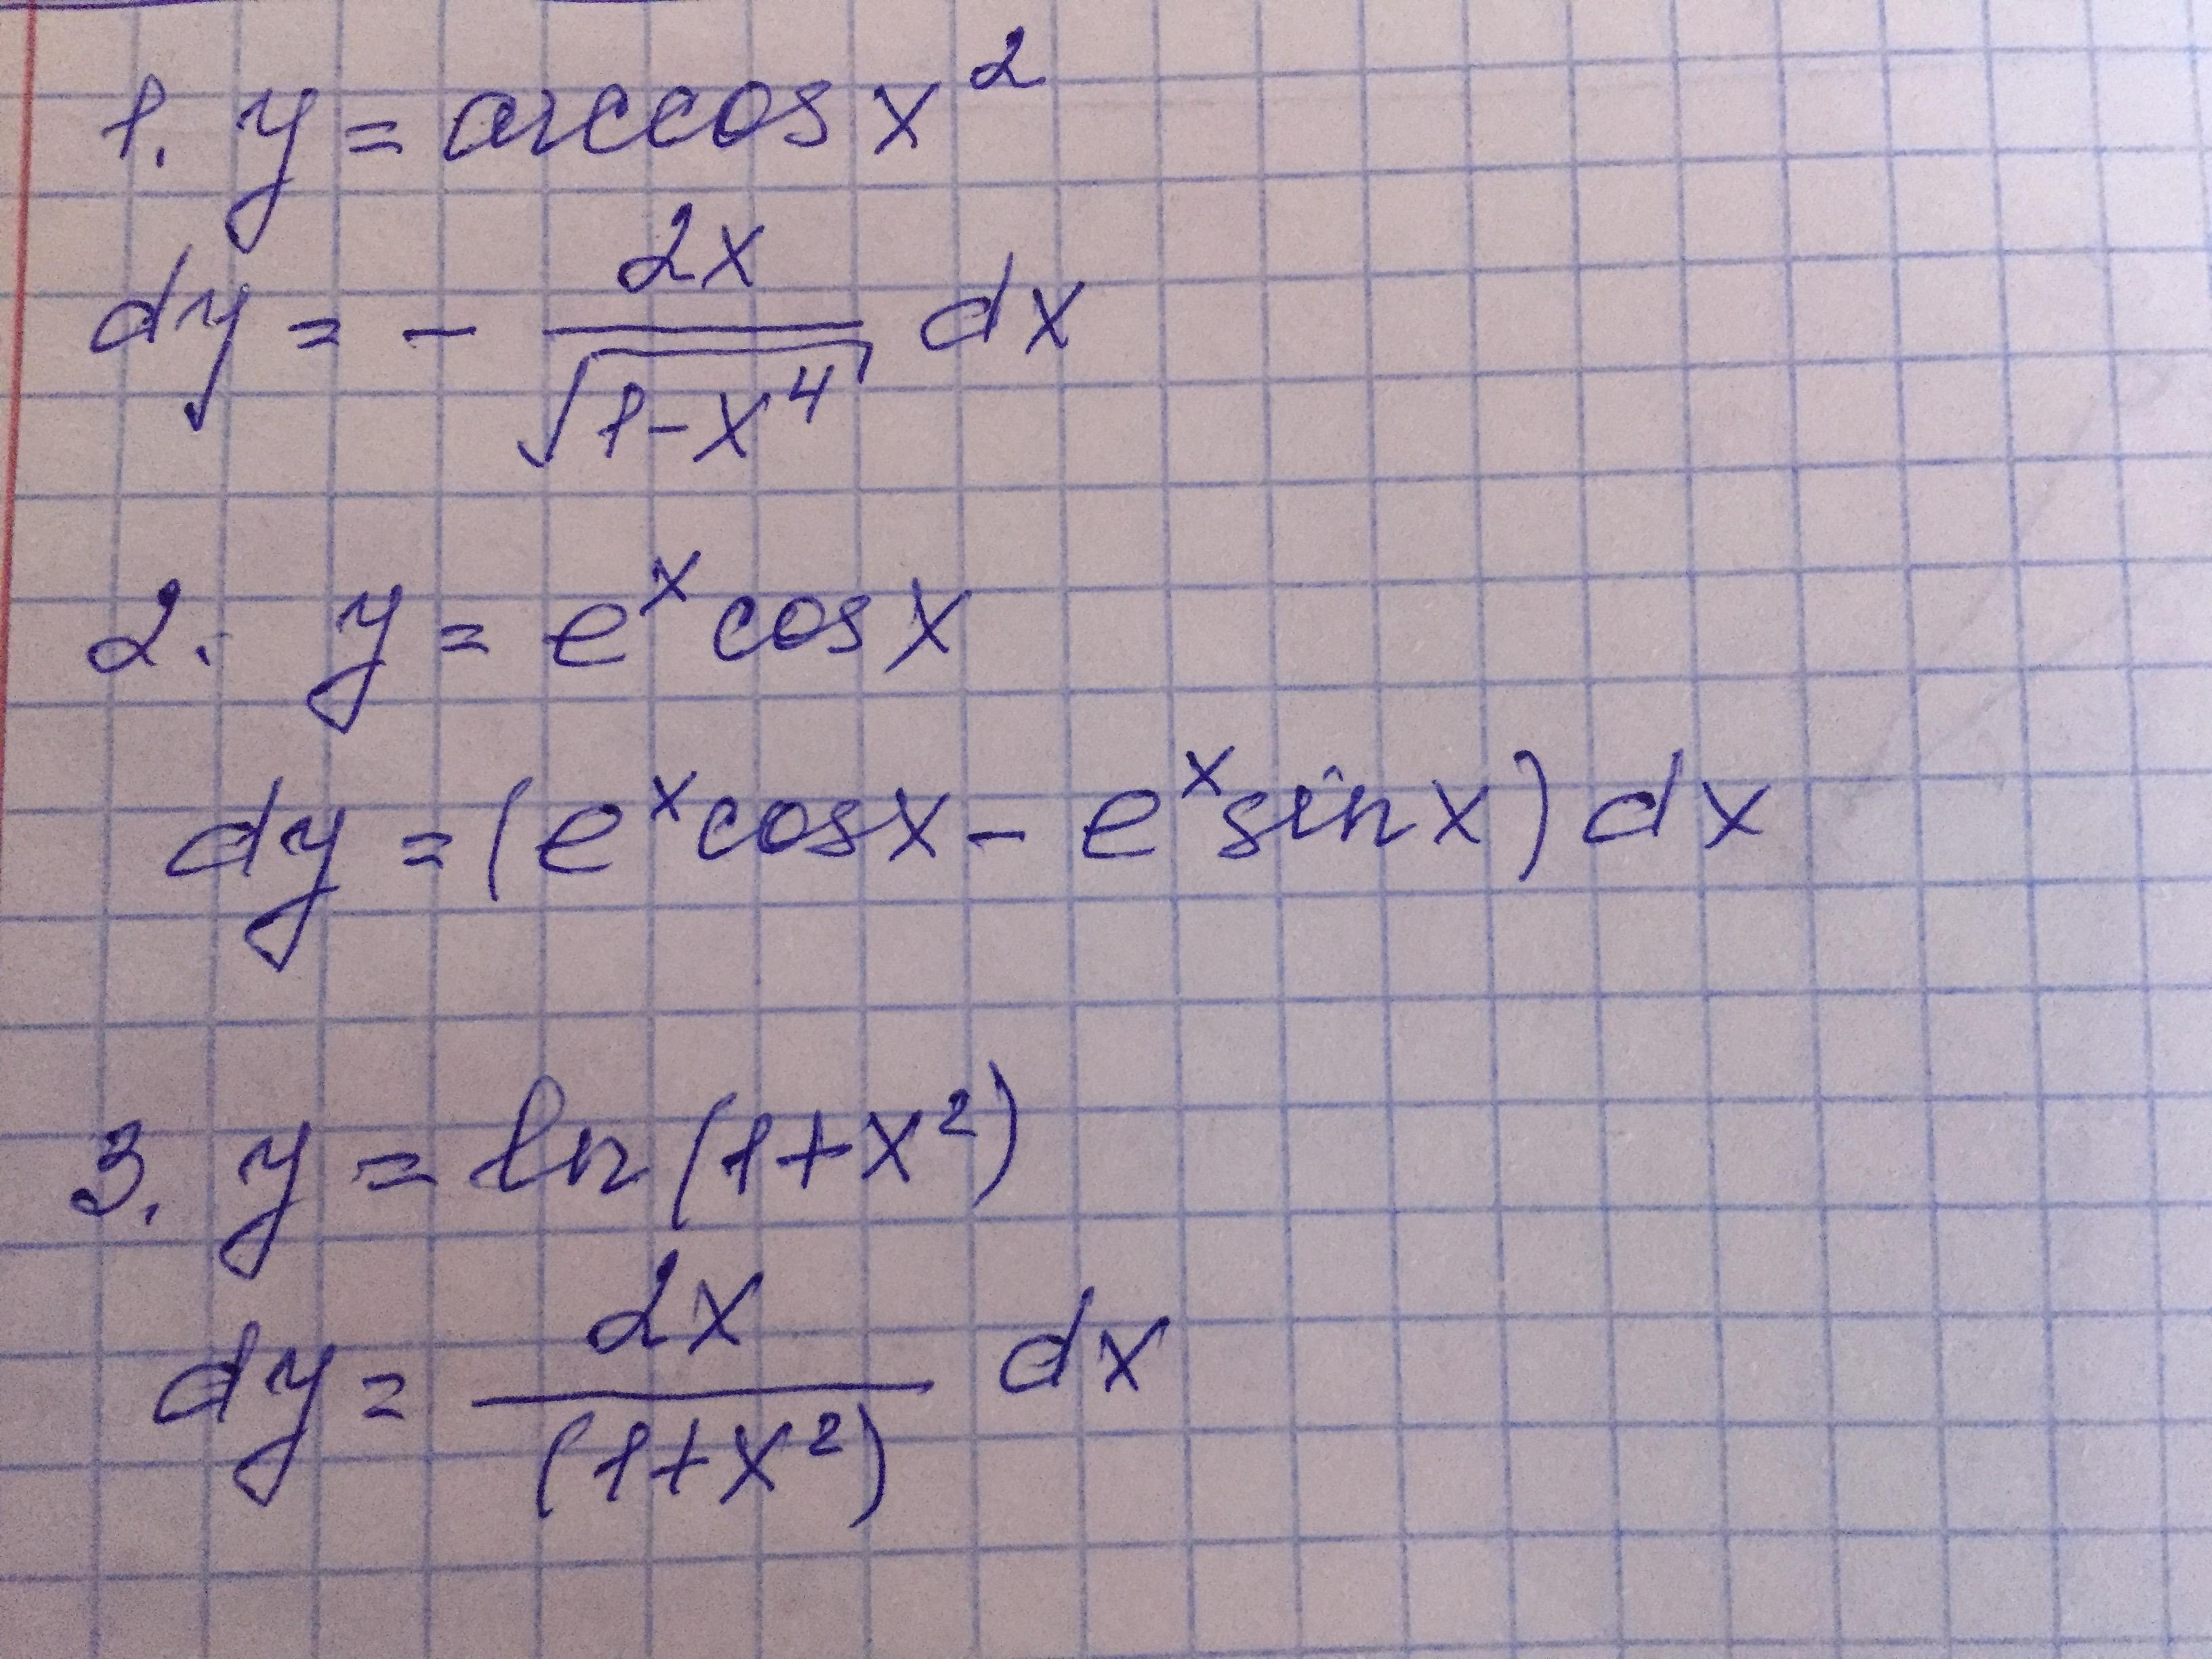 1. y = arccos x²
dy = - 2x/√(1-x⁴) dx
2. y = eˣ cos x
dy = (eˣ cos x - eˣ sin x) dx
3. y = ln(1+x²)
dy = 2x/(1+x²) dx